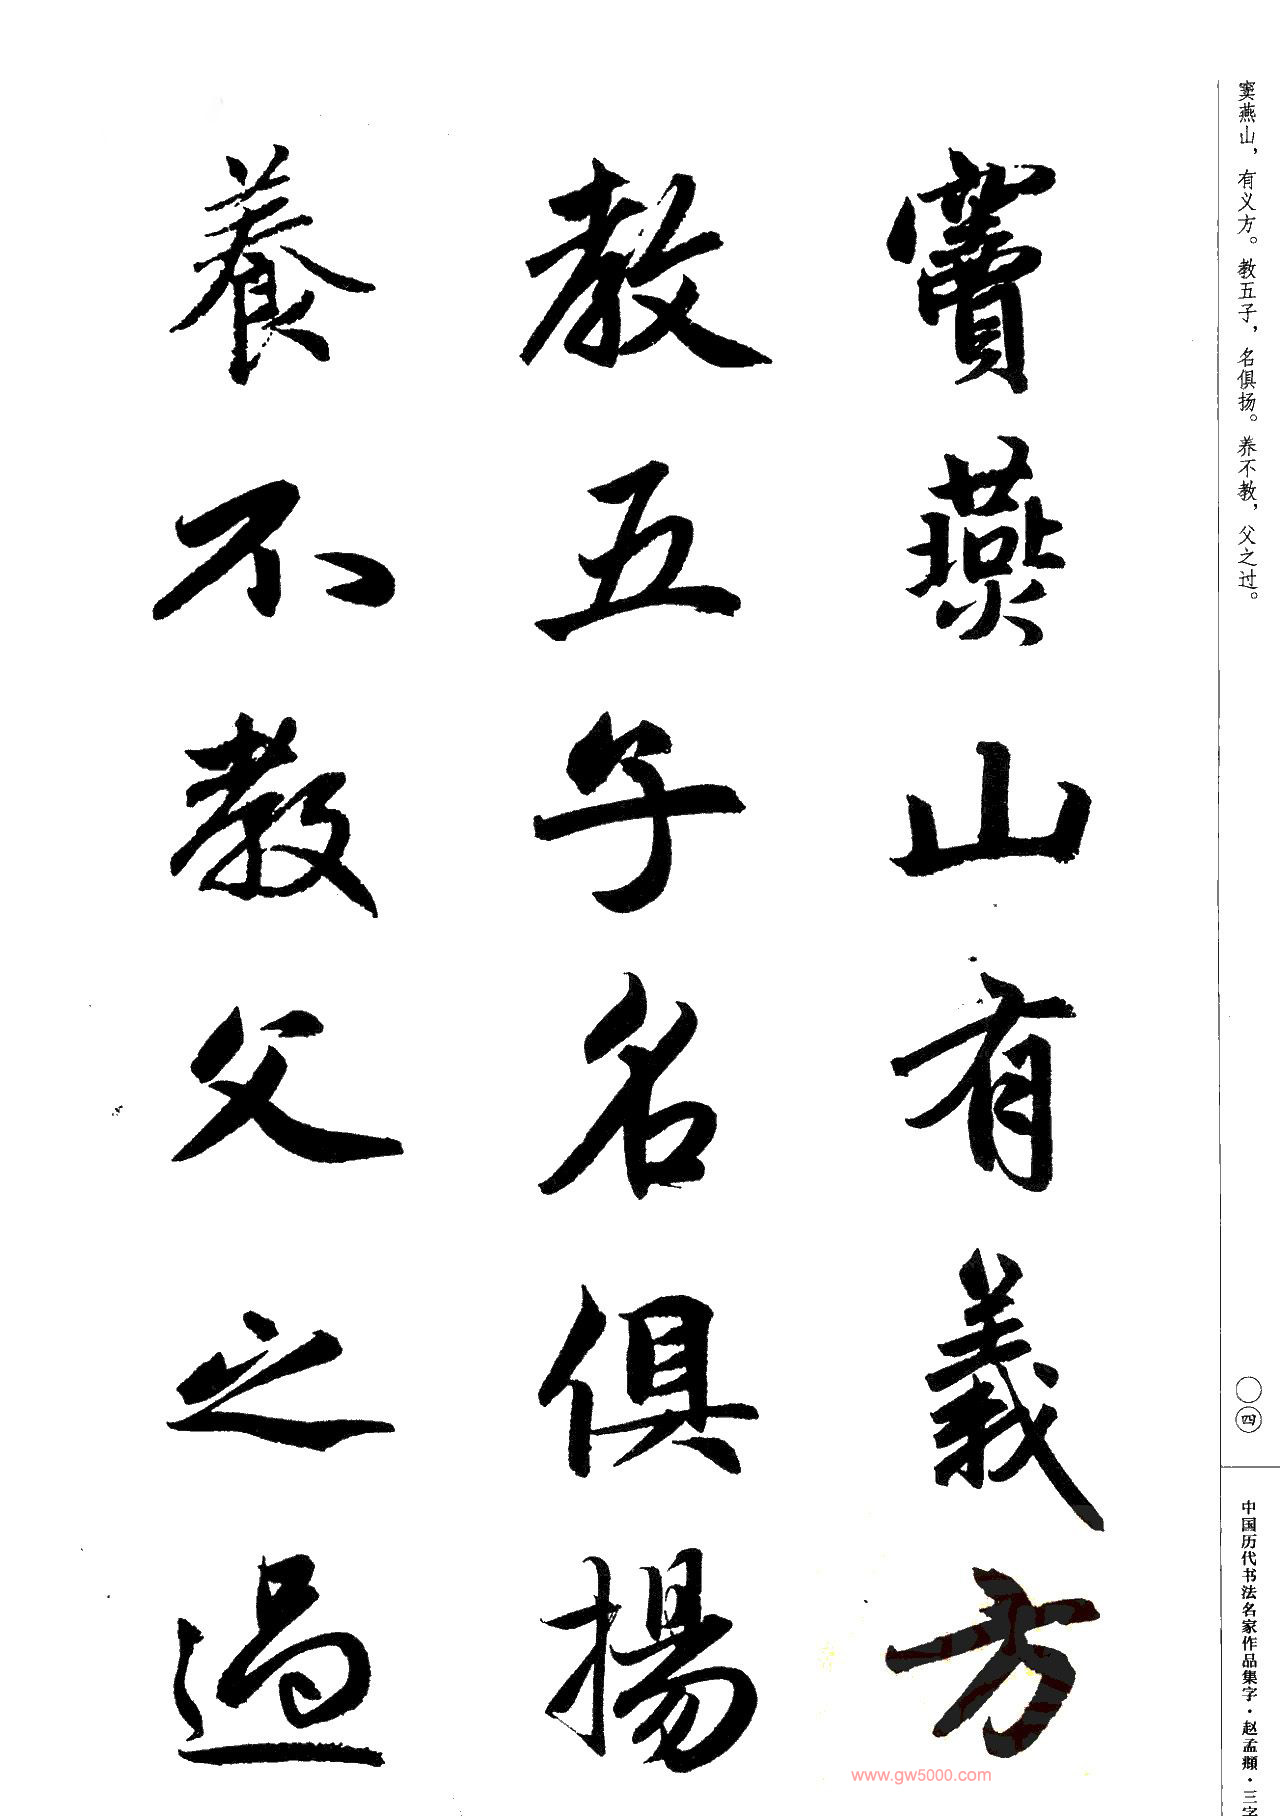 窦燕山，有义方。教五子，名俱扬。养不教，父之过。
竇燕山有義方
教五子名俱揚
養不教父之過
〇四
中国历代书法名家作品集字·赵孟頫·三字
www.gw5000.com